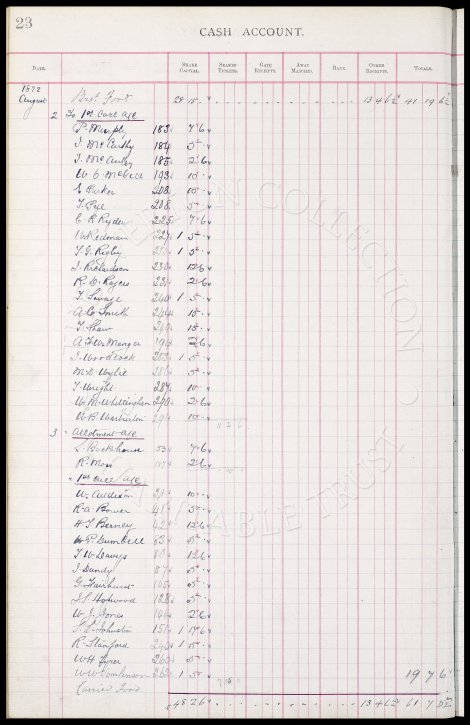 23
CASH ACCOUNT.
DATE. SHARE CAPITAL. SEASON TICKETS. GATE RECEIPTS. AWAY MATCHES. BANK. OTHER RECEIPTS. TOTALS.
1892
August Brot Ford 28 15 - 13 4 6½ 41 19 6½
2 To 1st Call a/c
P. Murphy 183 7 6
J. McCarthy 184 5 -
J. McCarthy 185 2 6
W. C. McNeill 193 10 -
E Parker 208 10 -
T. Pye 218 5 -
E R Ryder 225 7 6
W Redman 227 1 5 -
T. G. Rigby 1 5 -
J. Richardson 230 12 6
R. D. Rogers 231 2 6
T. Savage 240 1 5 -
A. Co. Smith 244 15 -
T. Shaw 249 15 -
A F W Manger 2 6
J. Woodcock 283 1 5 -
M. D. Wylie 286 5 -
T Wright 287 10 -
W. M. Whittingham 290 2 6
W B Warburton 291 10 -
3 " Allotment a/c
S. Backhouse 53 7 6
R. Moss 2 6
" 1st Call a/c
W. Addison 10 -
R A Bower 48 5 -
H J Berney 42 12 6
W P Dumbell 83 5 -
T W Davys 12 6
J Dandy 87 5 -
G. Fairhurst 105 5 -
J. S Hopwood 128 5 -
W. J. Jones 144 2 6
S. L. Johnston 151 1 17 6
R. Stanford 240 1 5 -
W H Tyrer 260 5 -
W W Tomlinson 262 1 5 - 19 7 6
Carried Ford 48 2 6 13 4 6½ 61 7 0½
COLLECTION
CHARITABLE TRUST